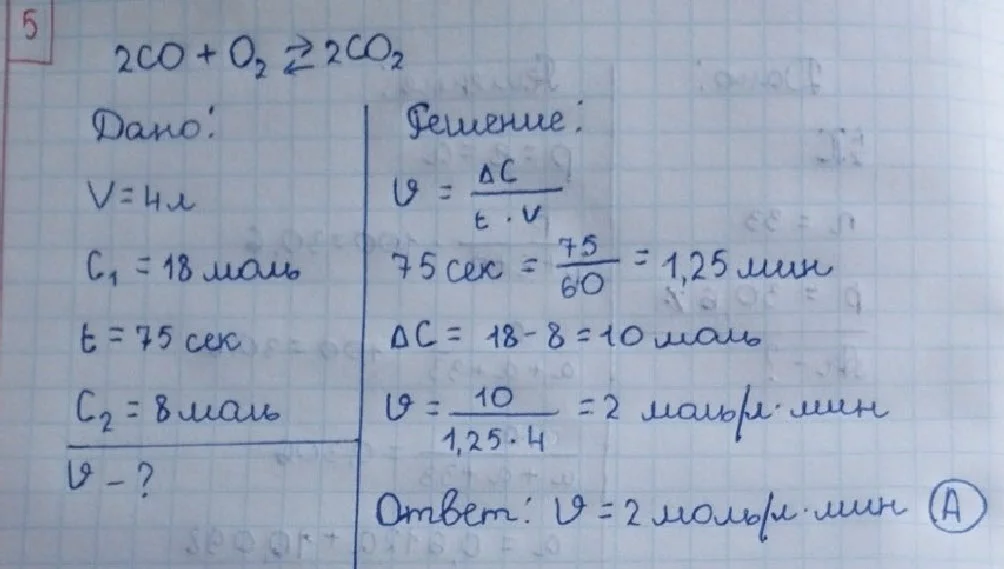 5
2CO + O₂ ⇄ 2CO₂
Дано:
V = 4 л
C₁ = 18 моль
t = 75 сек
C₂ = 8 моль
υ - ?
Решение:
υ = ΔC / t · V
75 сек = 75/60 = 1,25 мин
ΔC = 18 - 8 = 10 моль
υ = 10 / 1,25 · 4 = 2 моль/л · мин
Ответ: υ = 2 моль/л · мин (A)